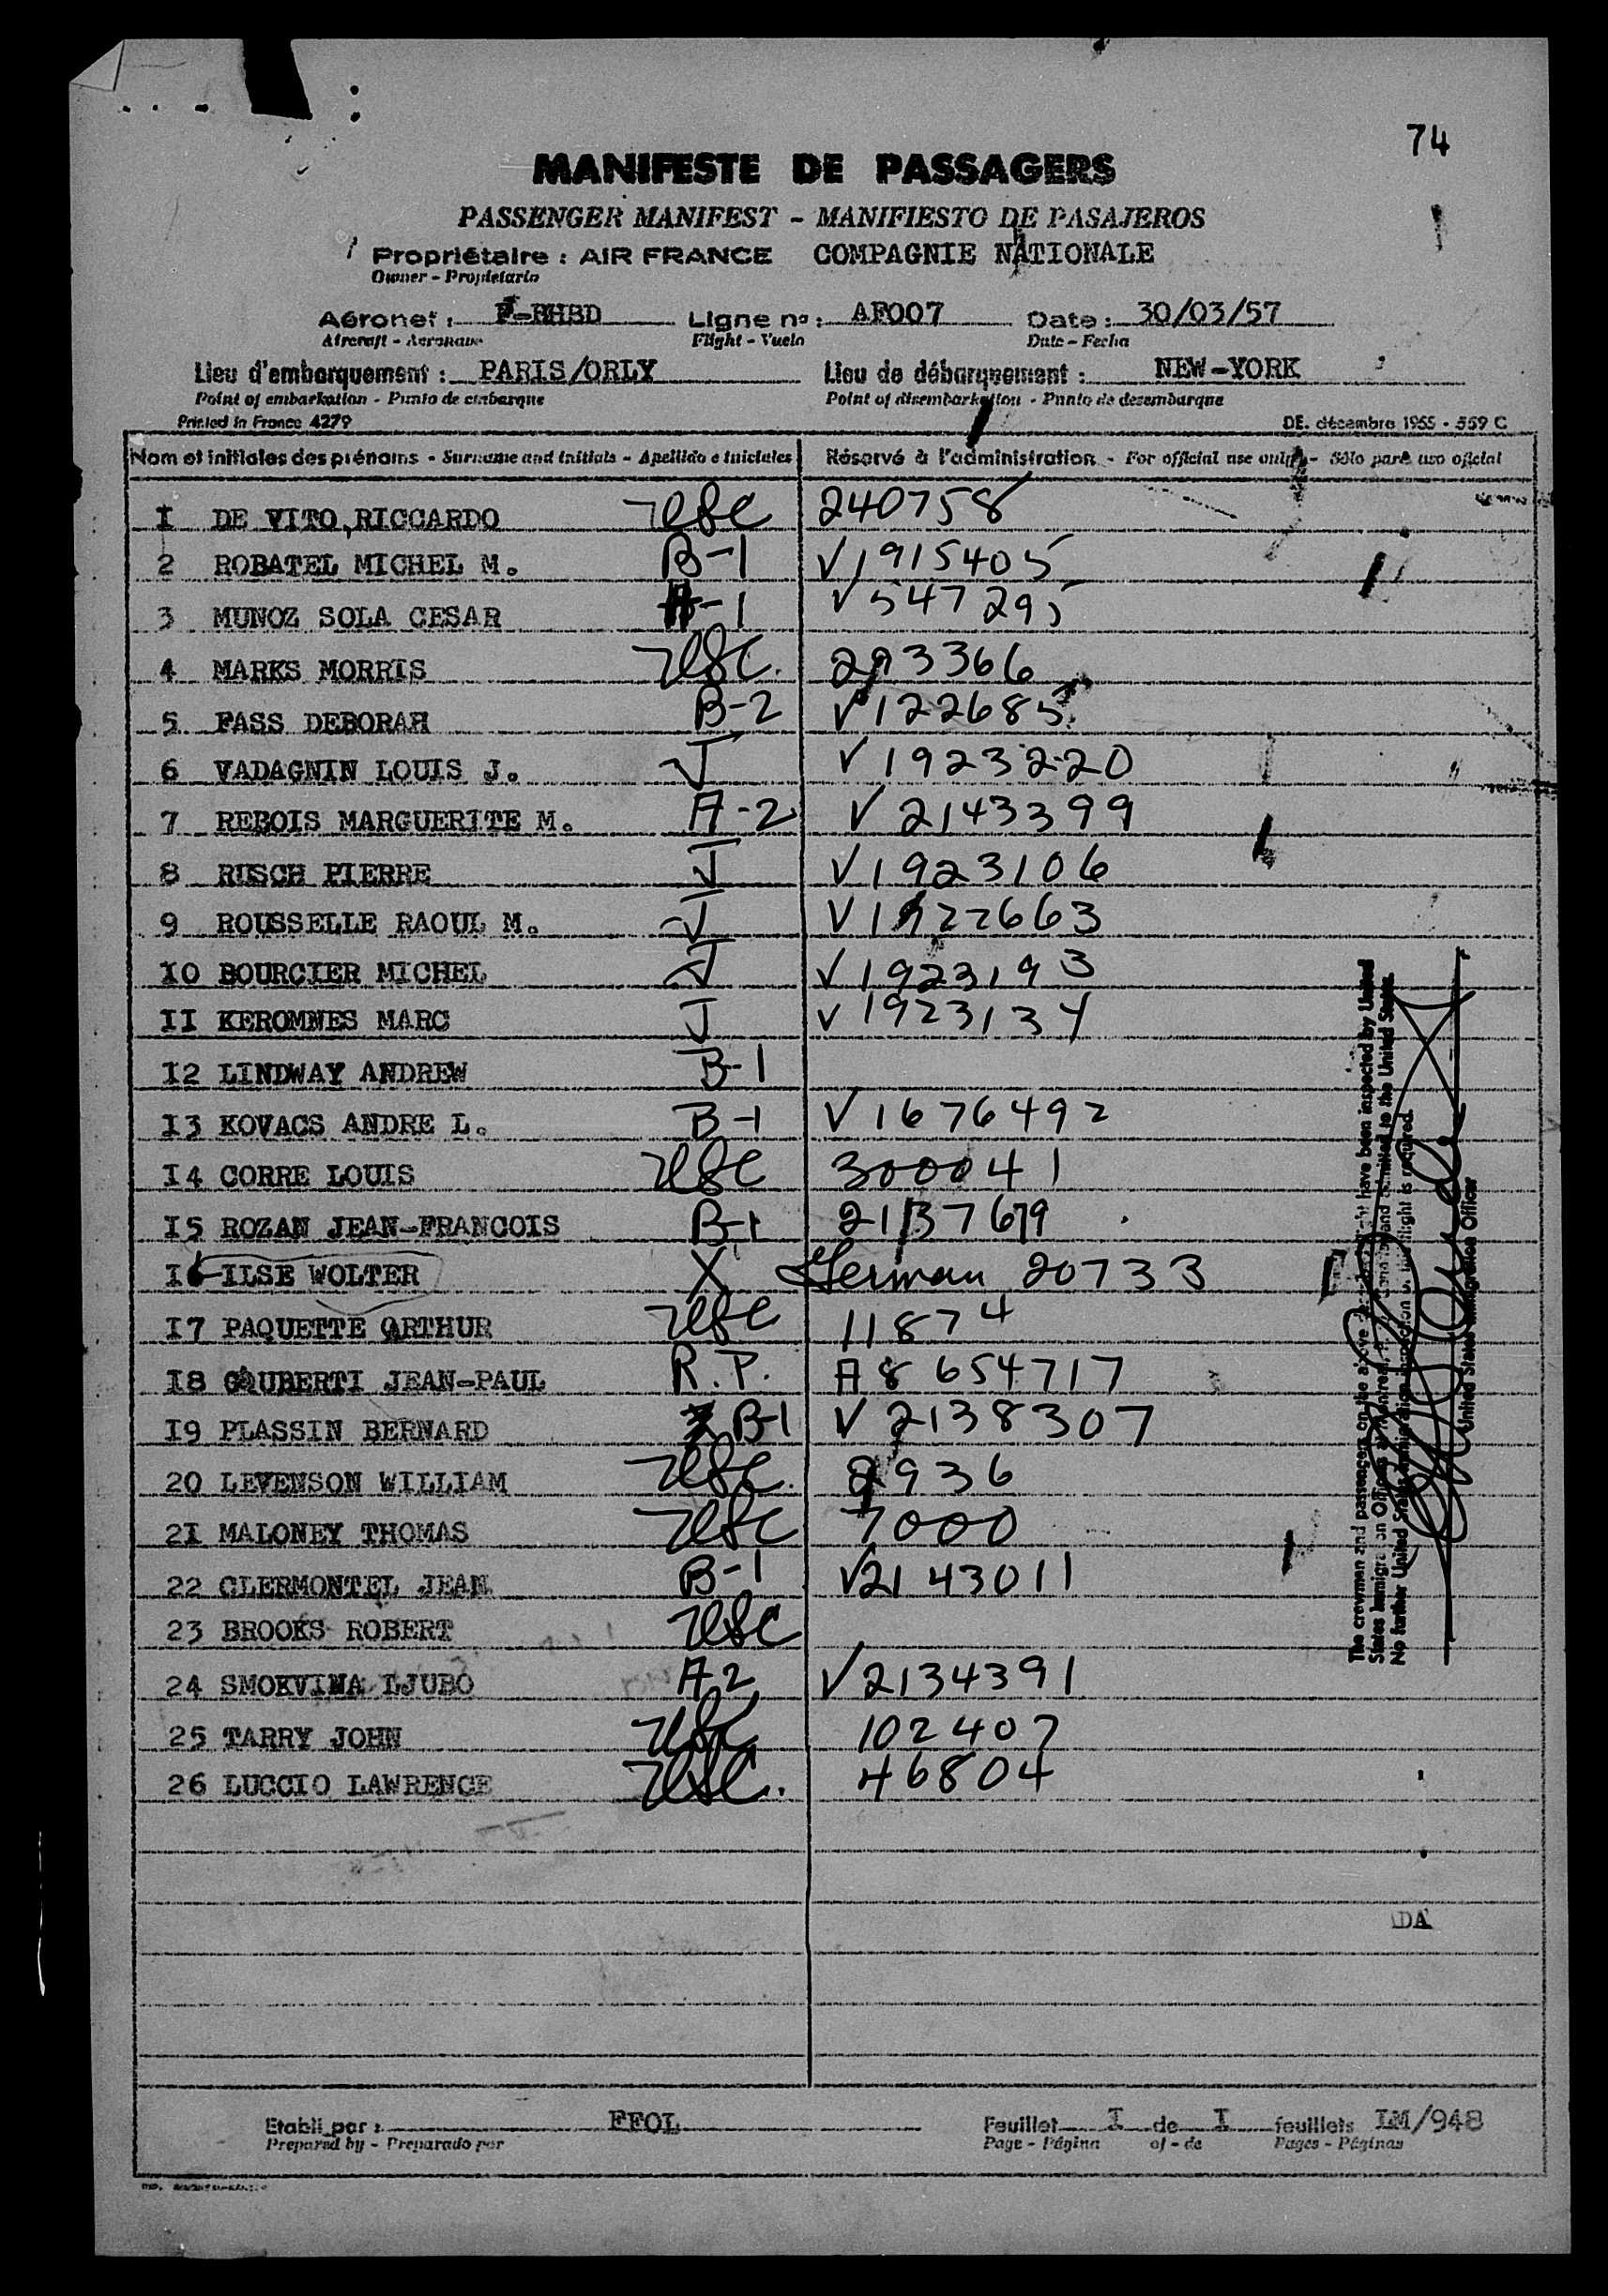 74
MANIFESTE DE PASSAGERS
PASSENGER MANIFEST - MANIFIESTO DE PASAJEROS
Propriétaire : AIR FRANCE COMPAGNIE NATIONALE
Owner - Propietario
Aéronef : F-BHBD Ligne no : AF007 Date : 30/03/57
Aircraft - Aeronave Flight - Vuelo Date - Fecha
Lieu d'embarquement : PARIS/ORLY Lieu de débarquement : NEW-YORK
Point of embarkation - Punto de embarque Point of disembarkation - Punto de desembarque
Printed in France 4279 DE. décembre 1955 - 559 C
Nom et initiales des prénoms - Surname and initials - Apellido e iniciales Réservé à l'administration - For official use only - Sólo para uso oficial
I DE VITO,RICCARDO USC 240758
2 ROBATEL MICHEL M. B-1 V1915405
3 MUNOZ SOLA CESAR -1 V547295
4 MARKS MORRIS USC. 293366
5 FASS DEBORAH B-2 V122685
6 VADAGNIN LOUIS J. J V1923220
7 REBOIS MARGUERITE M. A-2 V2143399
8 RUSCH PIERRE J V1923106
9 ROUSSELLE RAOUL M. J V1922663
IO BOURCIER MICHEL J V1923193
II KEROMNES MARC J V1923134
I2 LINDWAY ANDREW B-1
I3 KOVACS ANDRE L. B-1 V1676492
I4 CORRE LOUIS USC 300041
I5 ROZAN JEAN-FRANCOIS B-1 2137679
I6 ILSE WOLTER X German 20733
I7 PAQUETTE ARTHUR USC 11874
I8 GAUBERTI JEAN-PAUL R.P. A8 654717
I9 PLASSIN BERNARD B-1 V2138307
20 LEVENSON WILLIAM USC. 8936
2I MALONEY THOMAS USC 7000
22 CLERMONTEL JEAN B-1 V2143011
23 BROOKS ROBERT USC
24 SMOKVINA LJUBO A2 V2134391
25 TARRY JOHN USC 102407
26 LUCCIO LAWRENCE USC. 46804
The crewmen and passengers on the above have been inspected by United
States Immigration Officers at Montreal, and admitted to the United States.
No further United States immigration inspection of this flight is required.
United States Immigration Officer
DA
Etabli par : FFOL Feuillet I de I feuillets LM/948
Prepared by - Preparado por Page - Página of - de Pages - Páginas